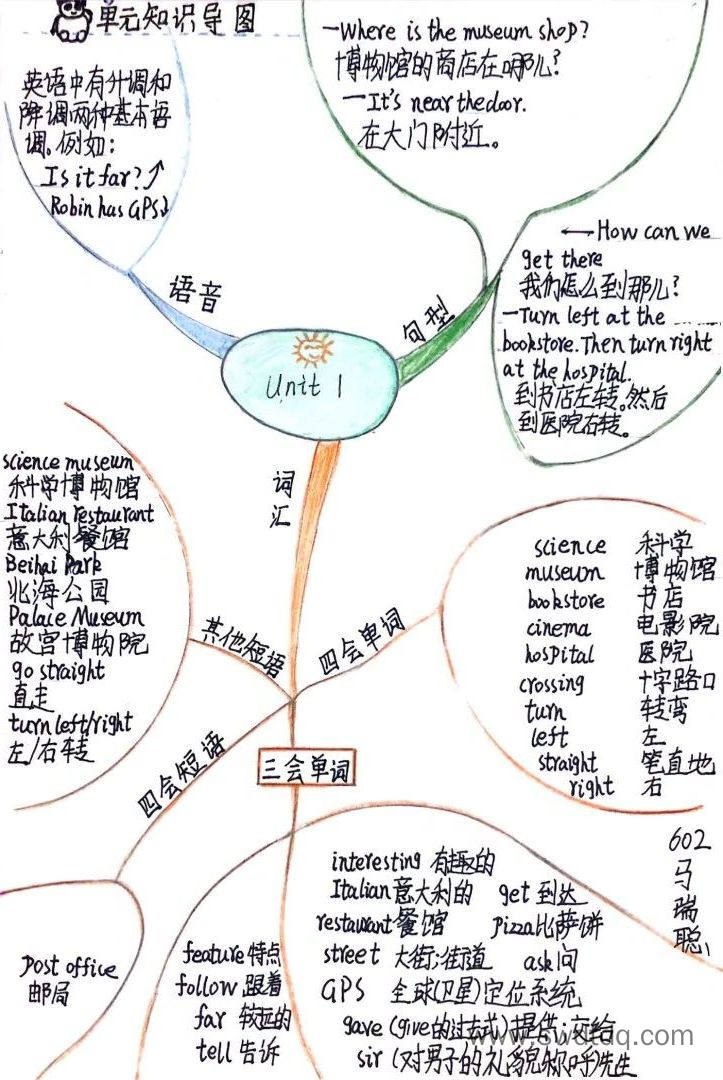 单元知识导图
英语中有升调和
降调两种基本语
调。例如：
Is it far?↗
Robin has GPS↘
语音
—Where is the museum shop?
博物馆的商店在哪儿?
—It's near the door.
在大门附近。
—How can we
get there
我们怎么到那儿?
—Turn left at the
bookstore. Then turn right
at the hospital.
到书店左转。然后
到医院右转。
句型
Unit 1
词汇
其他短语
science museum
科学博物馆
Italian restaurant
意大利餐馆
Beihai Park
北海公园
Palace Museum
故宫博物院
go straight
直走
turn left/right
左/右转
四会单词
science 科学
museum 博物馆
bookstore 书店
cinema 电影院
hospital 医院
crossing 十字路口
turn 转弯
left 左
straight 笔直地
right 右
四会短语
post office
邮局
三会单词
interesting 有趣的
Italian 意大利的 get 到达
restaurant 餐馆 pizza 比萨饼
street 大街;街道 ask 问
GPS 全球(卫星)定位系统
gave (give的过去式) 提供;交给
sir (对男子的礼貌称呼)先生
feature 特点
follow 跟着
far 较远的
tell 告诉
602
马瑞聪